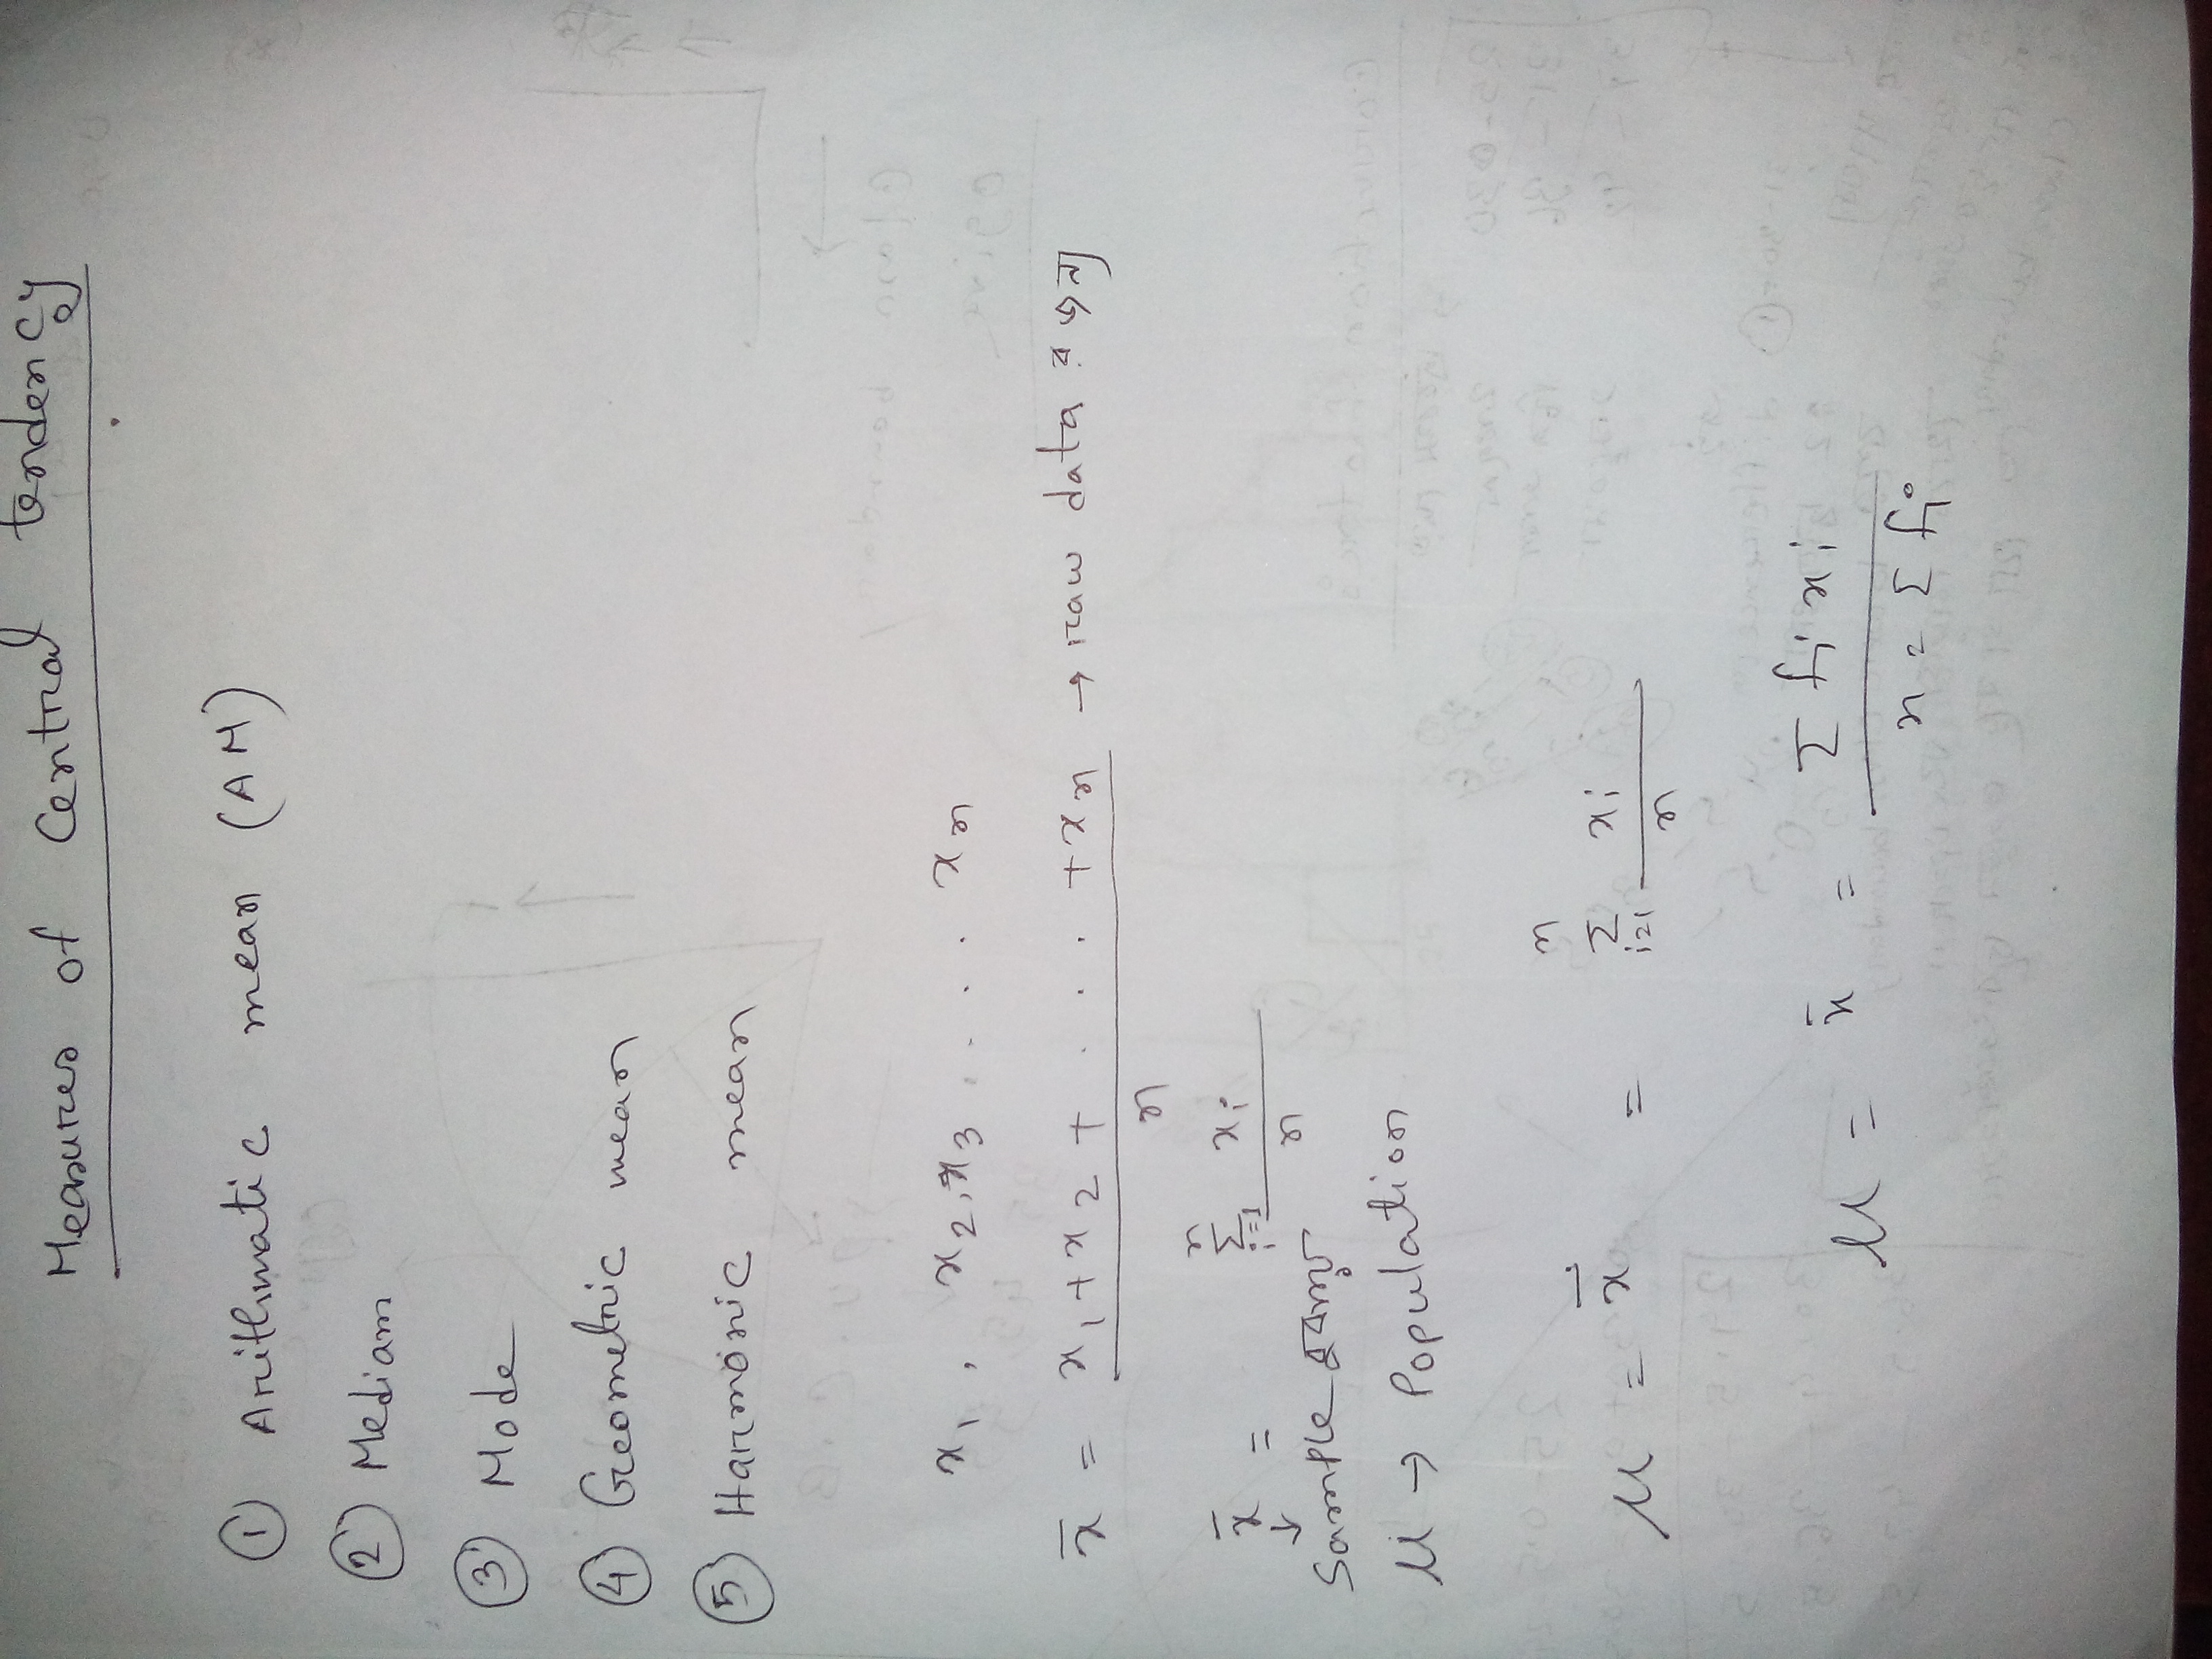 Measures of Central tendency
① Arithmatic mean (AM)
② Median
③ Mode
④ Geometric mean
⑤ Harmonic mean
x₁, x₂, x₃ . . . . xₙ
x̄ = (x₁ + x₂ + . . . + xₙ) / n → raw data
x̄ = Σᵢ₌₁ⁿ xᵢ / n
↓
Sample
μ → Population
μ = x̄ = Σᵢ₌₁ⁿ xᵢ / n
μ = x̄ = Σ fᵢ xᵢ / n = Σ fᵢ